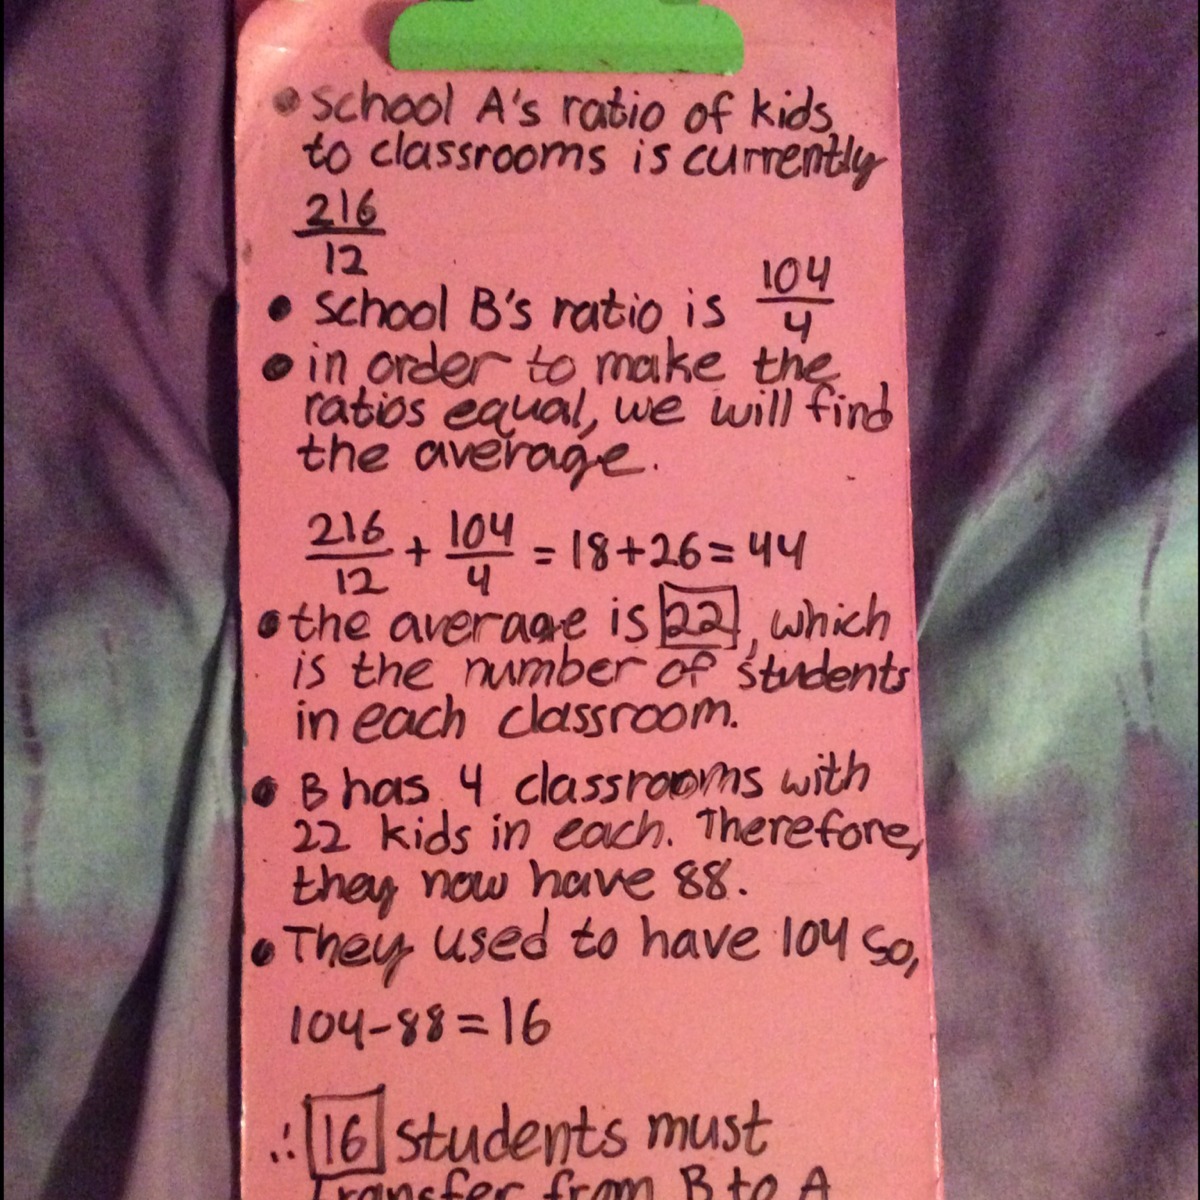 • School A's ratio of kids
to classrooms is currently
216/12
• School B's ratio is 104/4
• in order to make the
ratios equal, we will find
the average.
216/12 + 104/4 = 18+26=44
• the average is 22, which
is the number of students
in each classroom.
• B has 4 classrooms with
22 kids in each. Therefore,
they now have 88.
• They used to have 104 so,
104-88=16
∴ 16 students must
Transfer from B to A